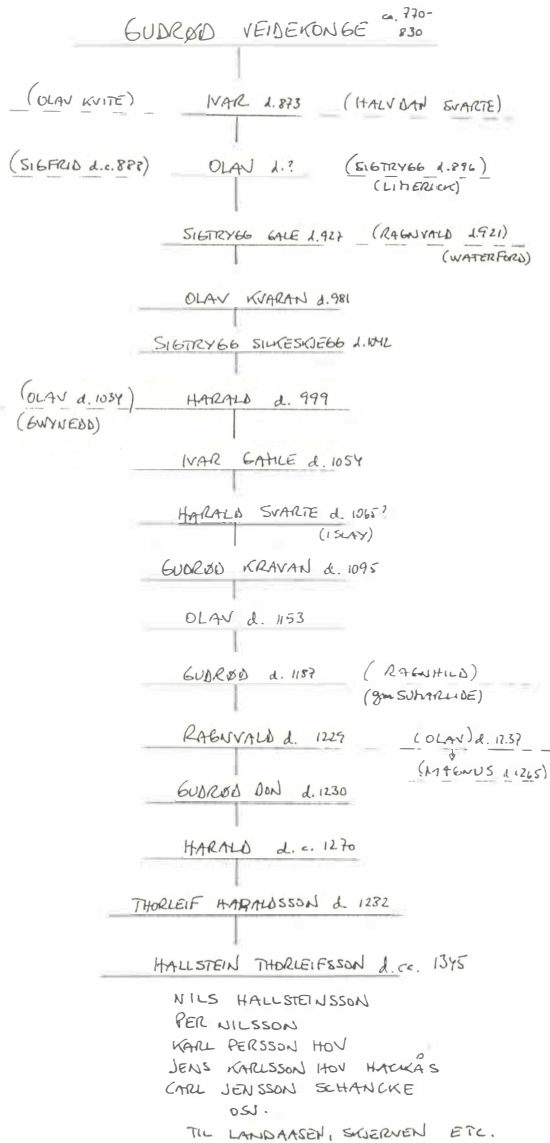 ca. 770-
GUDRØD VEIDEKONGE 830
(OLAV KVITE) IVAR d. 873 (HALVDAN SVARTE)
(SIGFRID d.c. 888) OLAV d. ? (SIGTRYGG d. 896)
(LIMERICK)
SIGTRYGG GALE d. 927 (RAGNVALD d. 921)
(WATERFORD)
OLAV KVARAN d. 981
SIGTRYGG SILKESKJEGG d. 1042
(OLAV d. 1034) HARALD d. 999
(GWYNEDD)
IVAR GAMLE d. 1054
HARALD SVARTE d. 1065?
(ISLAY)
GUDRØD KRAVAN d. 1095
OLAV d. 1153
GUDRØD d. 1187 (RAGNHILD)
(gm SUMARLIDE)
RAGNVALD d. 1229 (OLAV) d. 1237
(MAGNUS d. 1265)
GUDRØD DON d. 1230
HARALD d. c. 1270
THORLEIF HARALDSSON d. 1232
HALLSTEIN THORLEIFSSON d. cc. 1345
NILS HALLSTEINSSON
PER NILSSON
KARL PERSSON HOV
JENS KARLSSON HOV HACKÅS
CARL JENSSON SCHANCKE
OSV.
TIL LANDAASEN, SKJERVEN ETC.